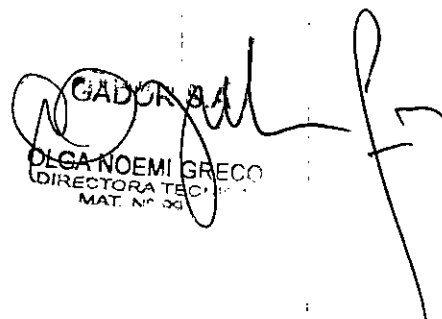 GADOR S.A.
OLGA NOEMI GRECO
DIRECTORA TECNICA
MAT. Nº